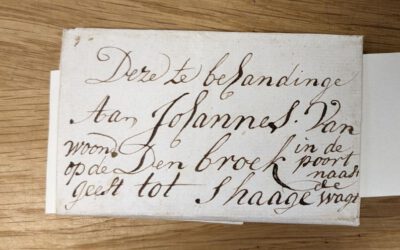 Deze te behandinge
Aan Johannes. Van
woond Den broek in de
op de poort
geest tot Shaage naast
de wagt